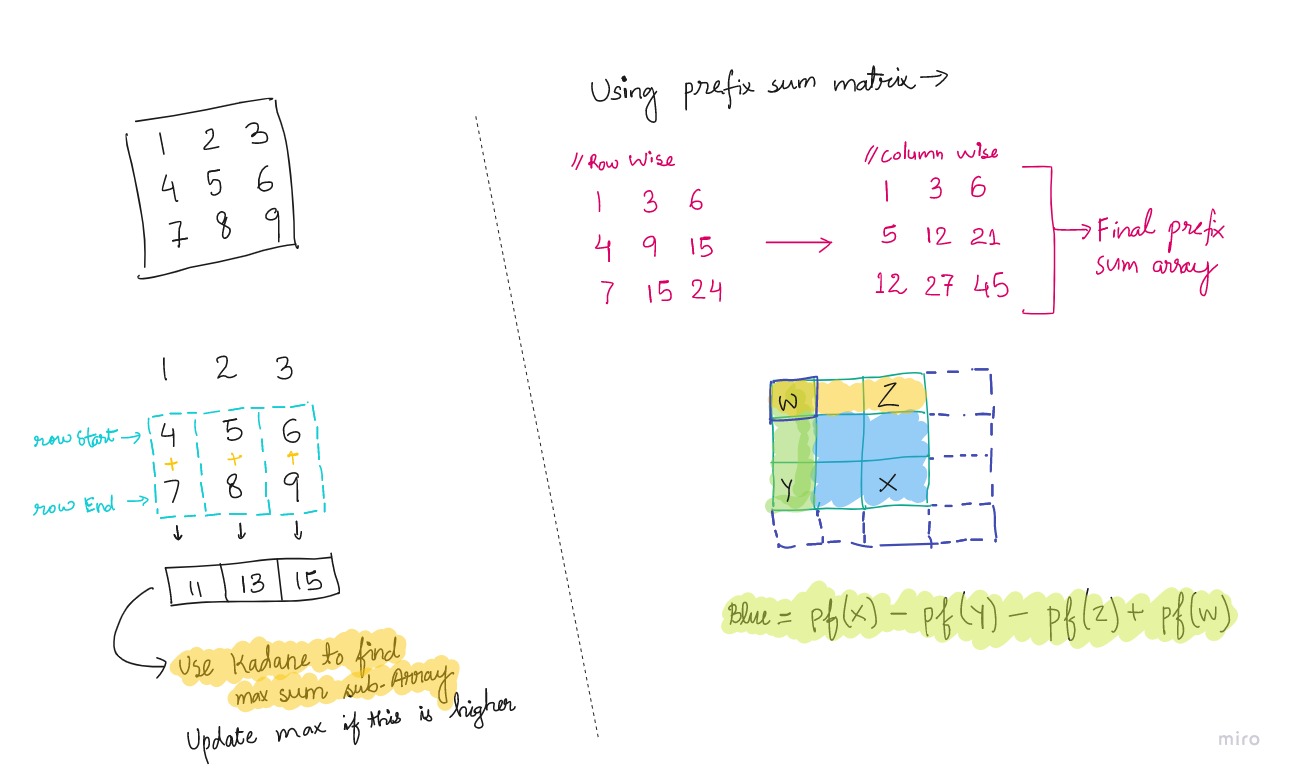 1 2 3
4 5 6
7 8 9
1 2 3
row Start → 4 5 6
+ + +
row End → 7 8 9
↓ ↓ ↓
11 13 15
Use Kadane to find
max sum sub-Array
Update max if this is higher
Using prefix sum matrix →
// Row Wise
1 3 6
4 9 15
7 15 24
// Column wise
1 3 6
5 12 21
12 27 45
Final prefix
sum array
W Z
Y X
Blue = pf(X) - pf(Y) - pf(Z) + pf(W)
miro